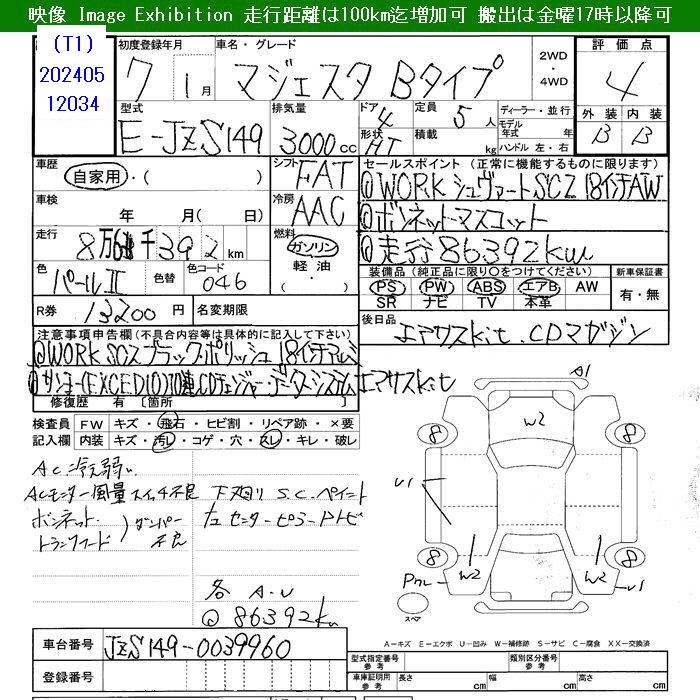 映像 Image Exhibition 走行距離は100km迄増加可 搬出は金曜17時以降可
(T1)
202405
12034
初度登録年月
7 1月
車名・グレード
マジェスタ Bタイプ
2WD
・
4WD
評価点
4
型式
E-JZS149
排気量
3000cc
ドア
4
形状
HT
定員
5人
積載
kg
ディーラー・並行
モデル
年式 年
ハンドル 左・右
外装 内装
B B
車歴
自家用・( )
シフト
FAT
セールスポイント(正常に機能するものに限ります)
◎WORK シュヴァートSCZ 18インチAW
◎ボンネットマスコット
◎走行86392km
車検
年 月( 日)
冷房
AAC
走行
8万6千392km
燃料
ガソリン
軽油
・
色
パールII
色替
色コード
046
装備品(純正品に限り○をつけてください)
PS PW ABS エアB AW
SR ナビ TV 本革
新車保証書
有・無
R券 13200円
名変期限
後日品
エアサスkit. CDマガジン
注意事項申告欄(不具合内容等は具体的に記入して下さい)
◎WORK SCZ ブラックポリッシュ 18インチアルミ
◎サンヨー(EXCEDIO)10連CDチェンジャーデーターシステムエアサスkit
修復歴 有 〔箇所
検査員 FW キズ・飛石・ヒビ割・リペア跡・×要
記入欄 内装 キズ・汚レ・コゲ・穴・スレ・キレ・破レ
AC冷え弱い
ACモニター風量スイッチ不良 下廻り S.C.ペイント
ボンネット.
トランクフード
)ダンパー
不良
センターピラー
各 A.U
◎ 86392km
A1
W2
8
8
U1
8
8
W2
W2
U1
スペア
A－キズ E－エクボ U－凹み W－補修跡 S－サビ C－腐食 XX－交換済
車台番号 JZS149-0039960
登録番号
型式指定番号
参考
類別区分番号
参考
車庫証明用
参考
長さ cm
幅 cm
高さ cm